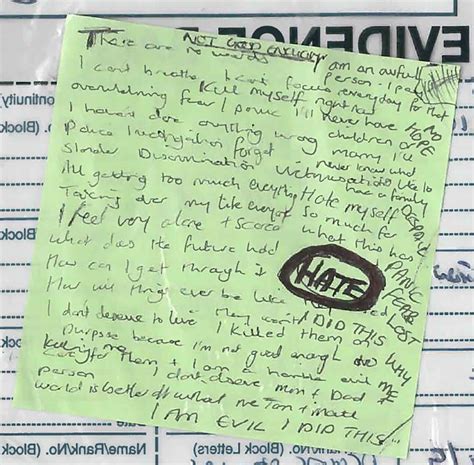 EVIDEN
ontinuity)
NOT GOOD ENOUGH
There are no words
I am an awful person - I pay
every day for that
I can't breathe I can't focus
Kill myself right now
overwhelming fear / panic
I'll never have
NO HOPE
I haven't done anything wrong
children or marry I'll
never know what
Police investigation forget
like to have a family
Slander Discrimination Victimisation
All getting too much everything
Hate myself
so much for
what this has
Taking over my life everyone
I feel very alone + scared
What does the future hold
How can I get through it
HATE
How will things ever be like
DESPAIR
PANIC
FEAR
LOST
I DID THIS
WHY ME
I don't deserve to live
I killed them on
purpose because I'm not good enough to
care for them + I am a horrible evil
person
I don't deserve Mum + Dad
world is better off without me
I AM EVIL I DID THIS
No. (Block
(Block
(Block Letters)
Name/Rank/No.
Name/Rank/No. (Block